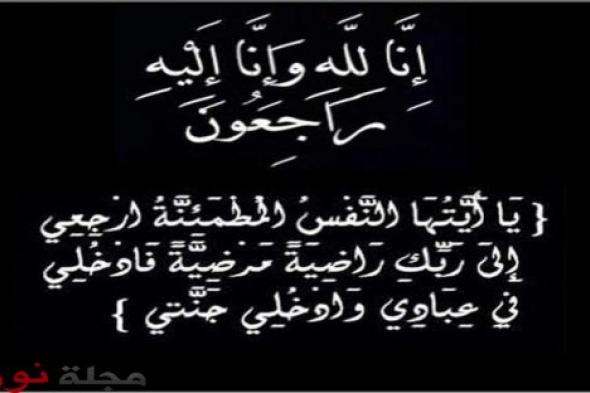 إِنَّا لِلَّهِ وَإِنَّا إِلَيْهِ
رَاجِعُونَ
{ يَا أَيَّتُهَا النَّفْسُ الْمُطْمَئِنَّةُ ارْجِعِي
إِلَى رَبِّكِ رَاضِيَةً مَرْضِيَّةً فَادْخُلِي
فِي عِبَادِي وَادْخُلِي جَنَّتِي }
مجلة